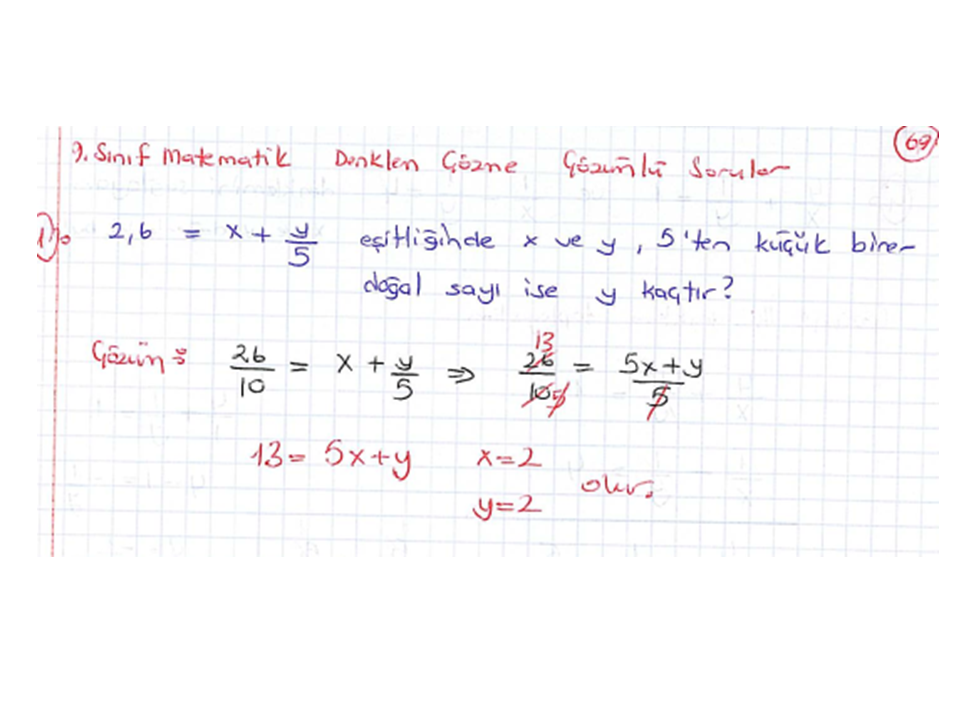 69
9. Sınıf Matematik Denklem Çözme Çözümlü Sorular
1) 2,6 = x + y/5 eşitliğinde x ve y, 5'ten küçük birer
doğal sayı ise y kaçtır?
Çözüm: 26/10 = x + y/5 ⇒ 13 26/10 5 = 5x+y/5
13 = 5x+y x=2
y=2 olur.